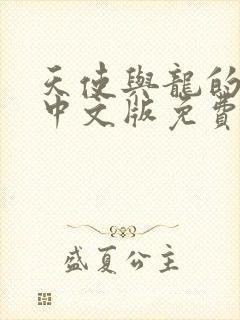 天使與龍的
中文版免費
盛夏公主